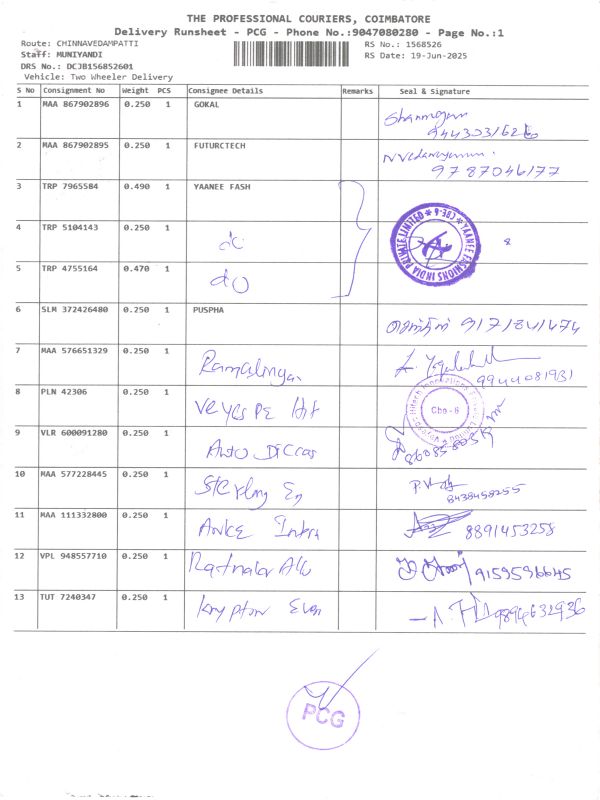 THE PROFESSIONAL COURIERS, COIMBATORE
Delivery Runsheet - PCG - Phone No.:9047080280 - Page No.:1
Route: CHINNAVEDAMPATTI
RS No.: 1568526
Staff: MUNIYANDI
RS Date: 19-Jun-2025
DRS No.: DCJB156852601
Vehicle: Two Wheeler Delivery
S No Consignment No Weight PCS Consignee Details Remarks Seal & Signature
1 MAA 867902896 0.250 1 GOKAL
9443031626
2 MAA 867902895 0.250 1 FUTURCTECH
9787046177
3 TRP 7965584 0.490 1 YAANEE FASH
4 TRP 5104143 0.250 1 do
YAANEE FASHIONS INDIA PRIVATE LIMITED CBE-6
5 TRP 4755164 0.470 1 do
6 SLM 372426480 0.250 1 PUSPHA
7 MAA 576651329 0.250 1 Ramalingan
9944081931
8 PLN 42306 0.250 1
Cbe-6
9 VLR 600091280 0.250 1 Auto
10 MAA 577228445 0.250 1
8438458255
11 MAA 111332800 0.250 1
8891453258
12 VPL 948557710 0.250 1
9159596645
13 TUT 7240347 0.250 1 krypton
9894632936
PCG